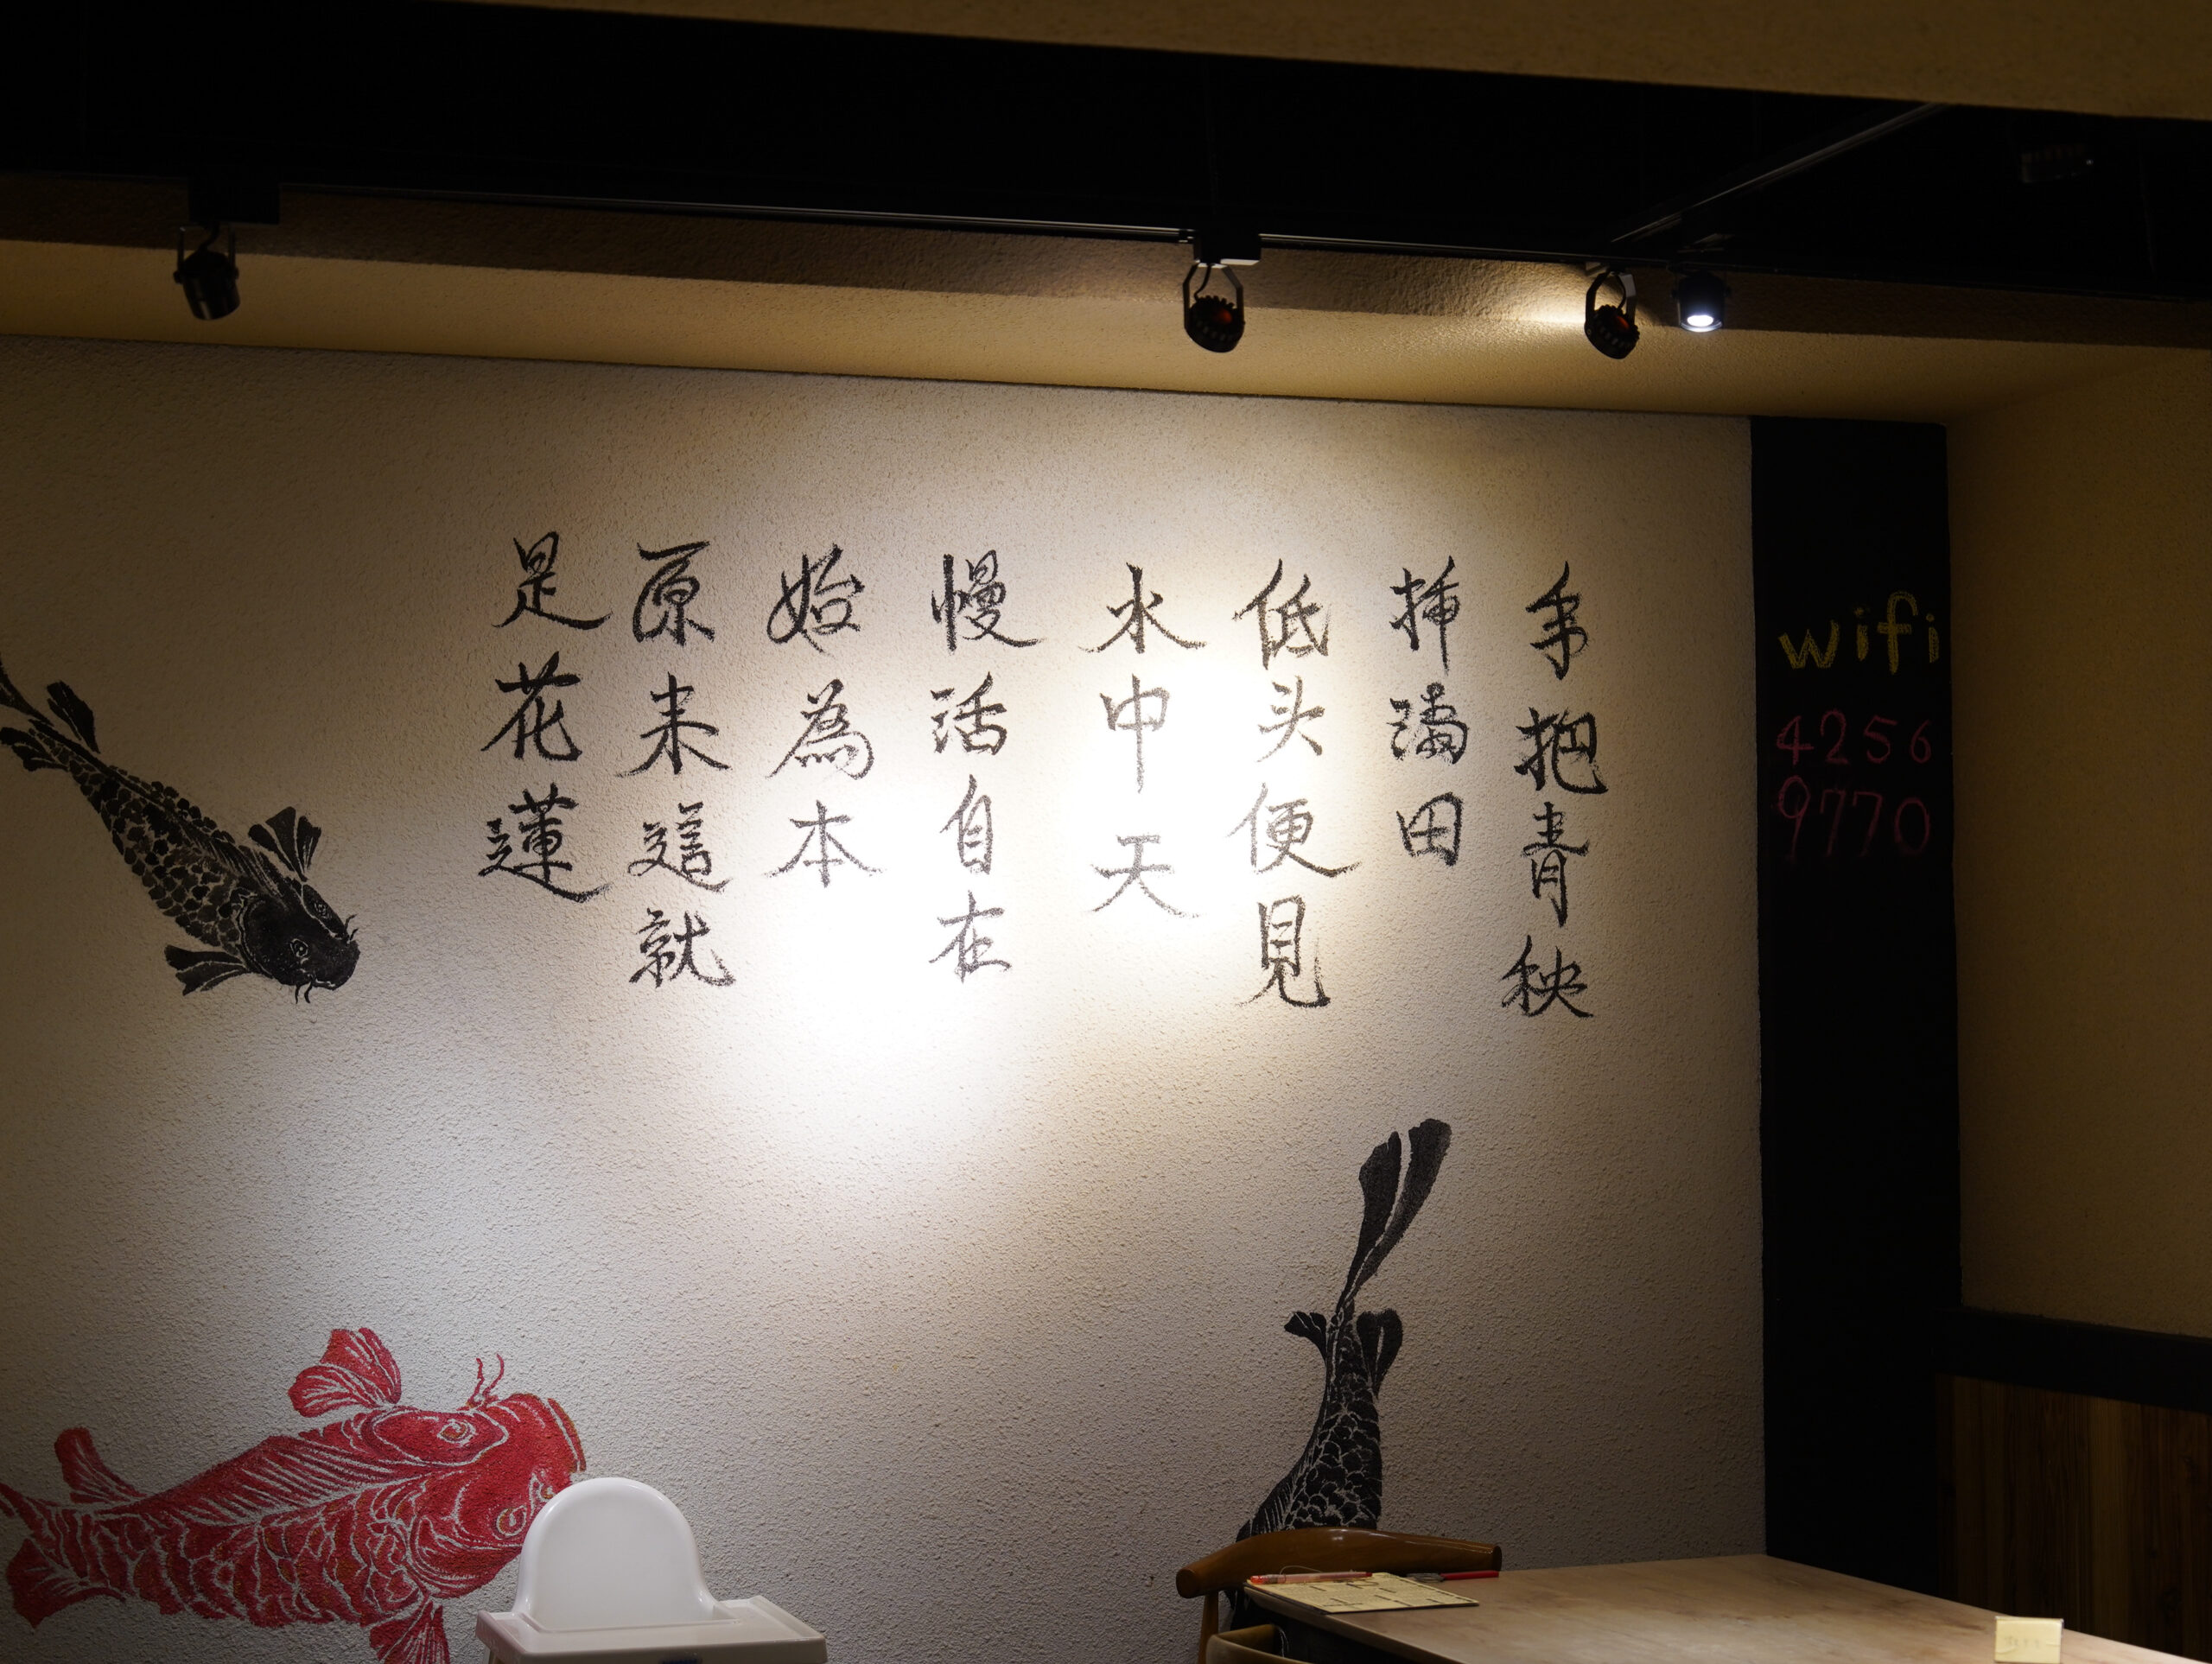 手把青秧
插滿田
低头便見
水中天
慢活自在
始為本
原来這就
是花蓮
wifi
4256
9770